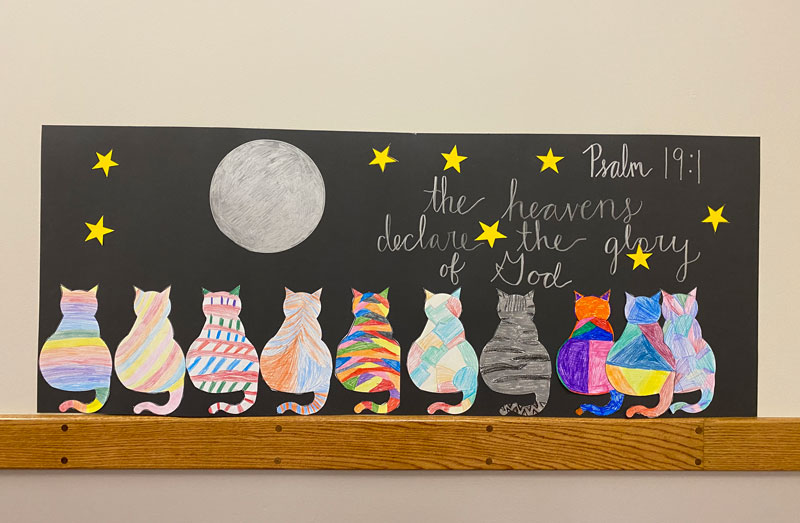 Psalm 19:1
the heavens
declare the glory
of God